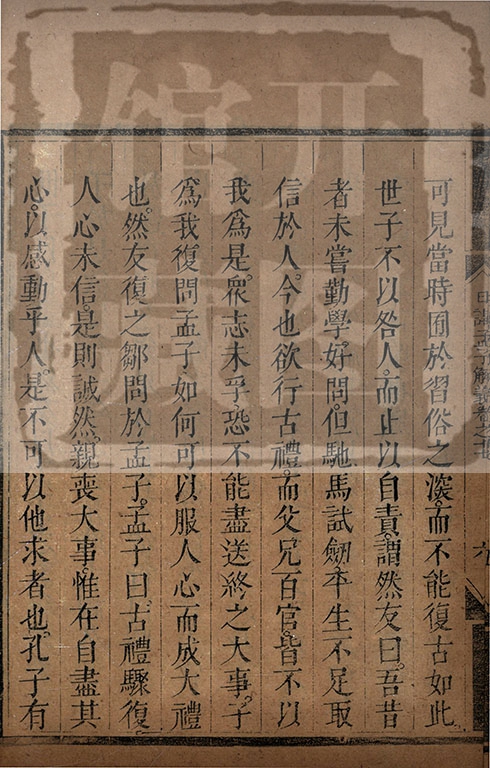 可見當時囿於習俗之深而不能復古如此
世子不以咎人而止以自責謂然友曰吾昔
者未嘗勤學好問但馳馬試劒平生不足取
信於人今也欲行古禮而父兄百官皆不以
我爲是衆志未孚恐不能盡送終之大事子
爲我復問孟子如何可以服人心而成大禮
也然友復之鄒問於孟子孟子曰古禮驟復
人心未信是則誠然親喪大事惟在自盡其
心以感動乎人是不可以他求者也孔子有